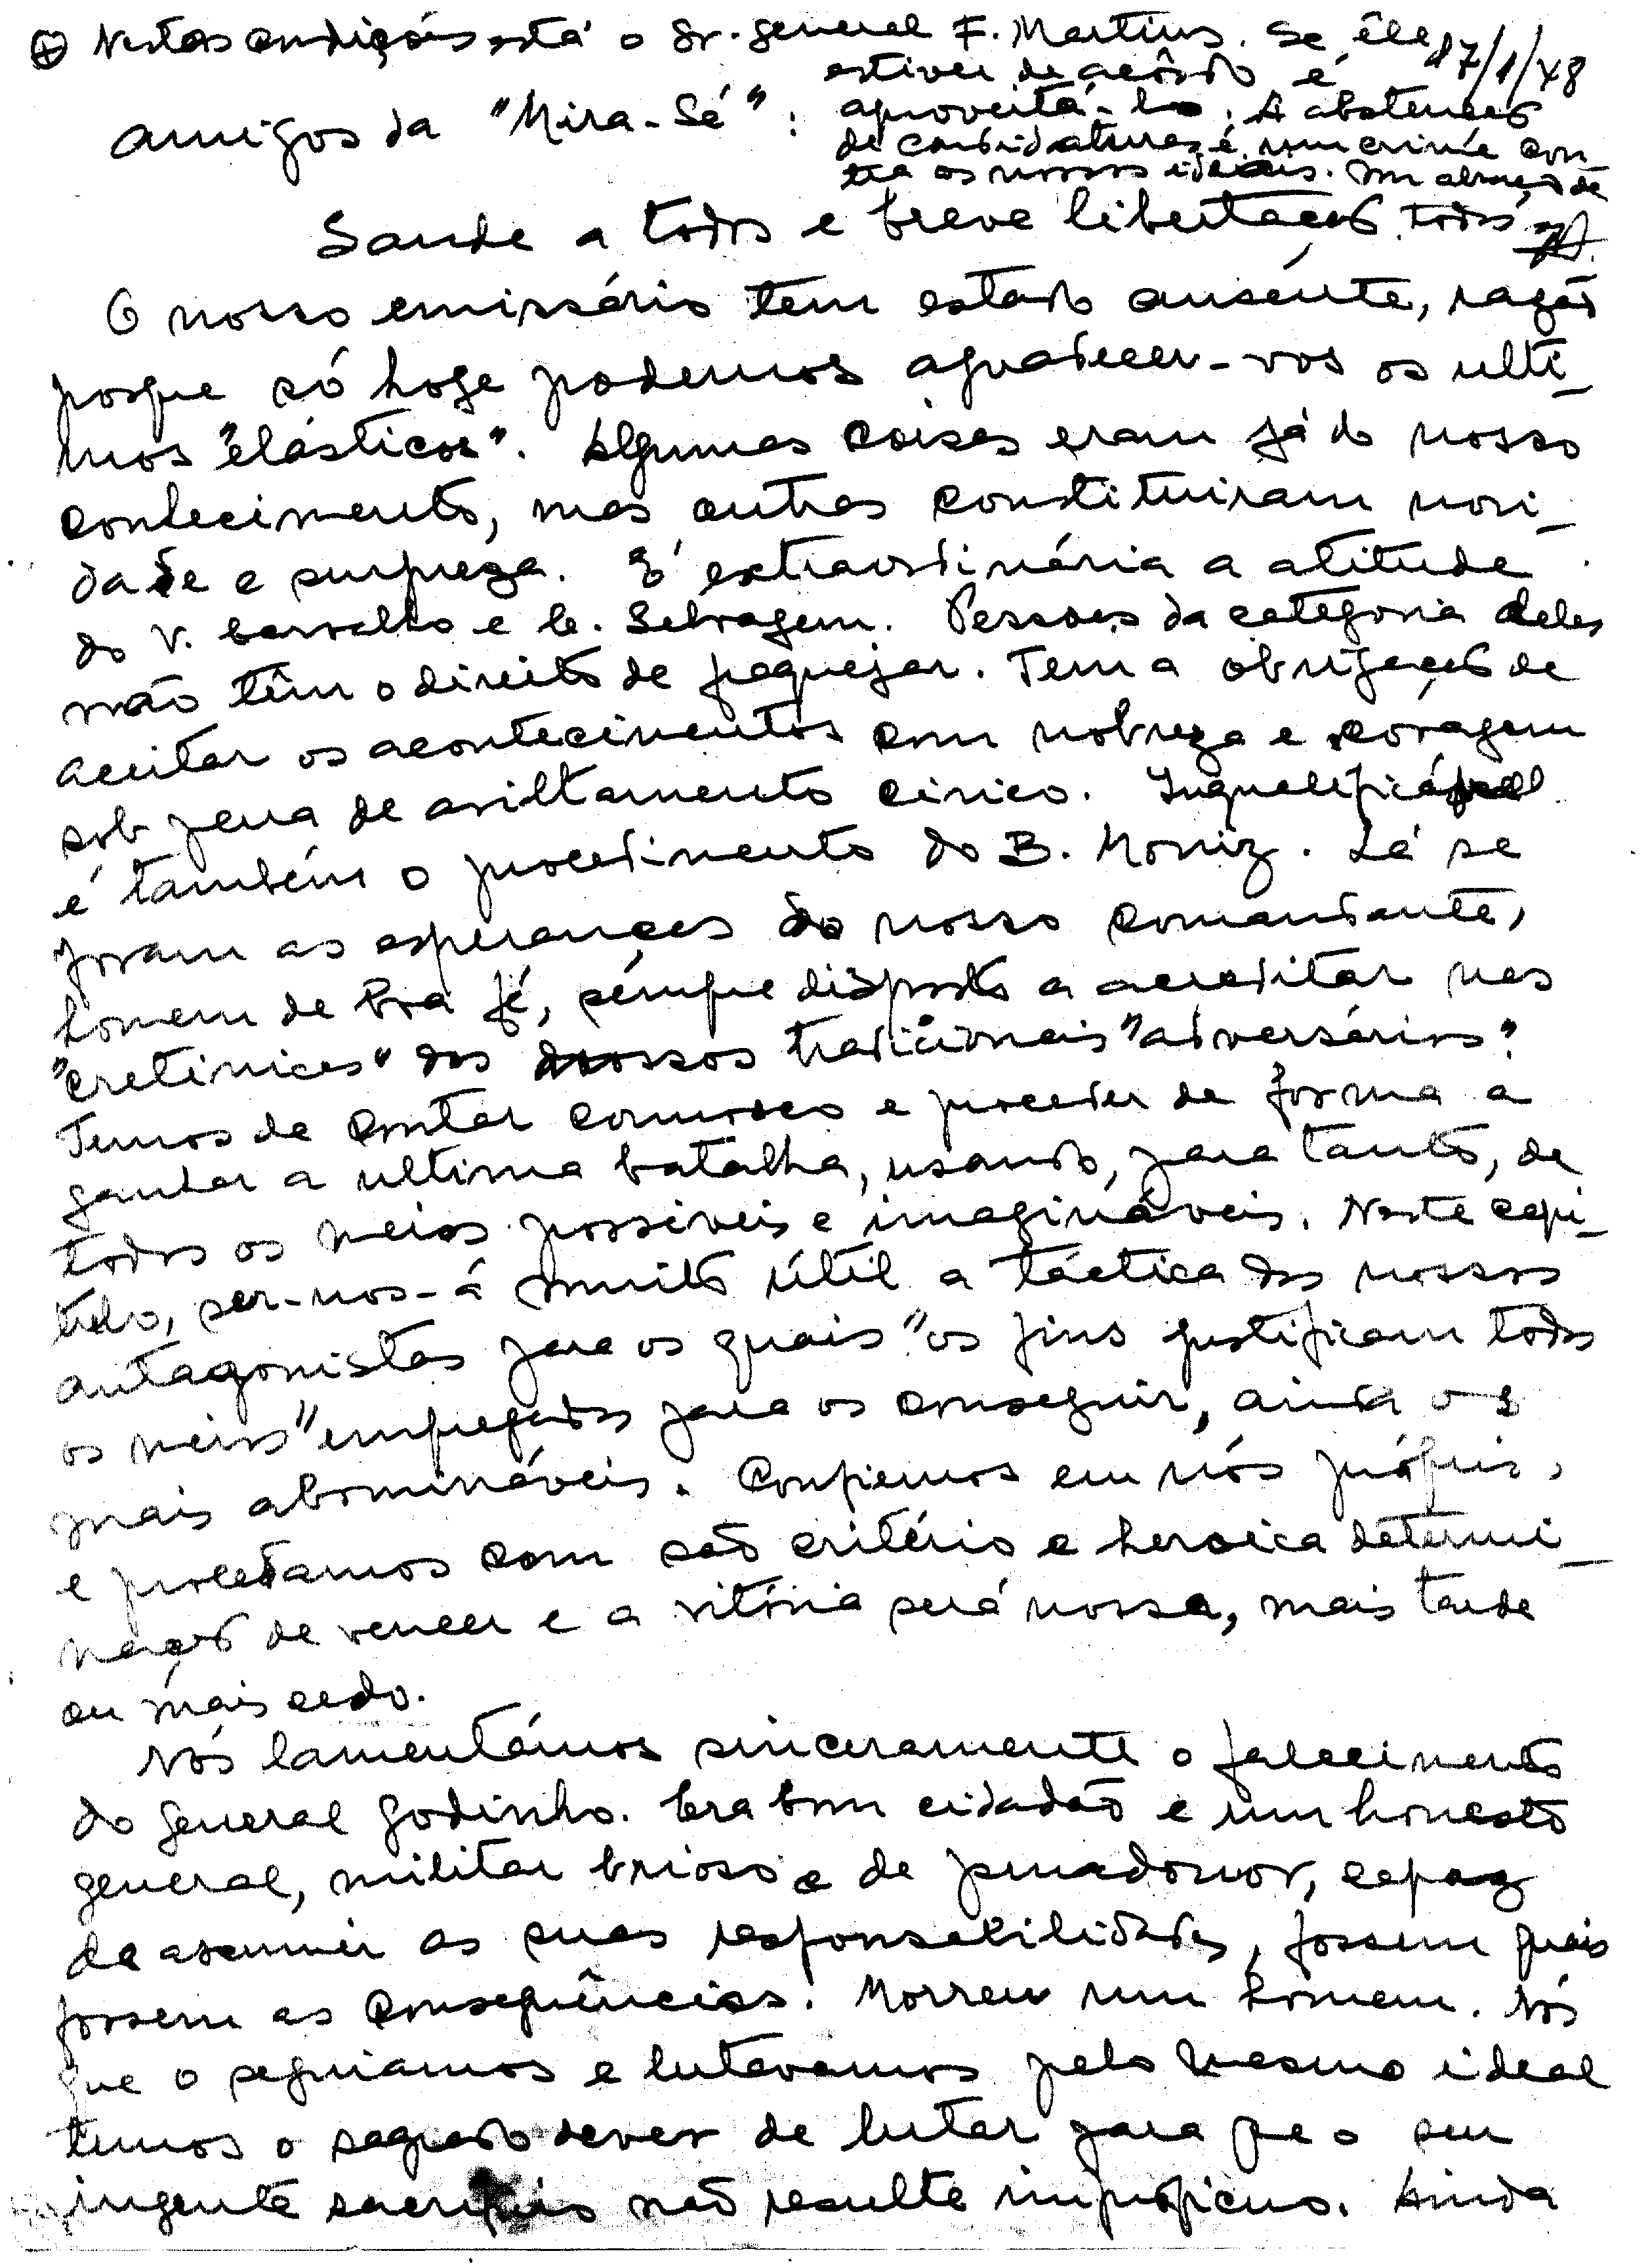 ⊕ Nestas condições está o Sr. General F. Martins. Se êle
17/1/48
estiver de acôrdo é
aproveitá-lo. A abstenção
de candidaturas é um crime con-
tra os nossos ideais. Um abraço de
todos
Amigos da "Mira-Sé":
Saude a todos e breve libertação.
O nosso emissário tem estado ausênte, razão
porque só hoge podemos agradecer-vos os ulti-
mos "elásticos". Algumas coisas eram já do nosso
conhecimento, mas outras constituiram novi-
dade e surpreza. É extraordinária a atitude
do V. Carvalho e C. Selvagem. Pessoas da categoria deles
não têm o direito de fraquejar. Tem a obrigação de
aceitar os acontecimentos com nobreza e coragem
sob pena de aviltamento civico. Inqualificável
é também o procedimento do B. Moniz. Lá se
foram as esperanças do nosso comandante,
homem de boa fé, sempre disposto a acreditar nas
"cretinices" dos nossos tradicionais "adversários".
Temos de contar connosco e proceder de forma a
ganhar a ultima batalha, usando, para tanto, de
todos os meios possiveis e imagináveis. Neste capi-
tulo, ser-nos-á muito útil a táctica dos nossos
antagonistas para os quais "os fins justificam todos
os meios" empregados para os conseguir, ainda os
mais abomináveis. Confiemos em nós próprios,
e procedamos com são critério e heroica determi-
nação de vencer e a vitória será nossa, mais tarde
ou mais cedo.
Nós lamentámos sinceramente o falecimento
do general Godinho. Era bom cidadão e um honesto
general, militar brioso e de pundonor, capaz
de assumir as suas responsabilidades, fossem quais
fossem as consequências. Morreu um homem. Nós
que o seguiamos e lutavamos pelo mesmo ideal
temos o sagrado dever de lutar para que o seu
ingente sacrificio não resulte improficuo. Ainda